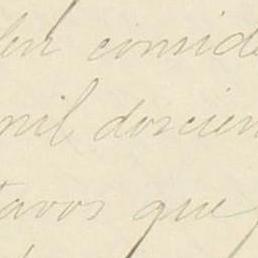 en conside
mil doscien
tavos que